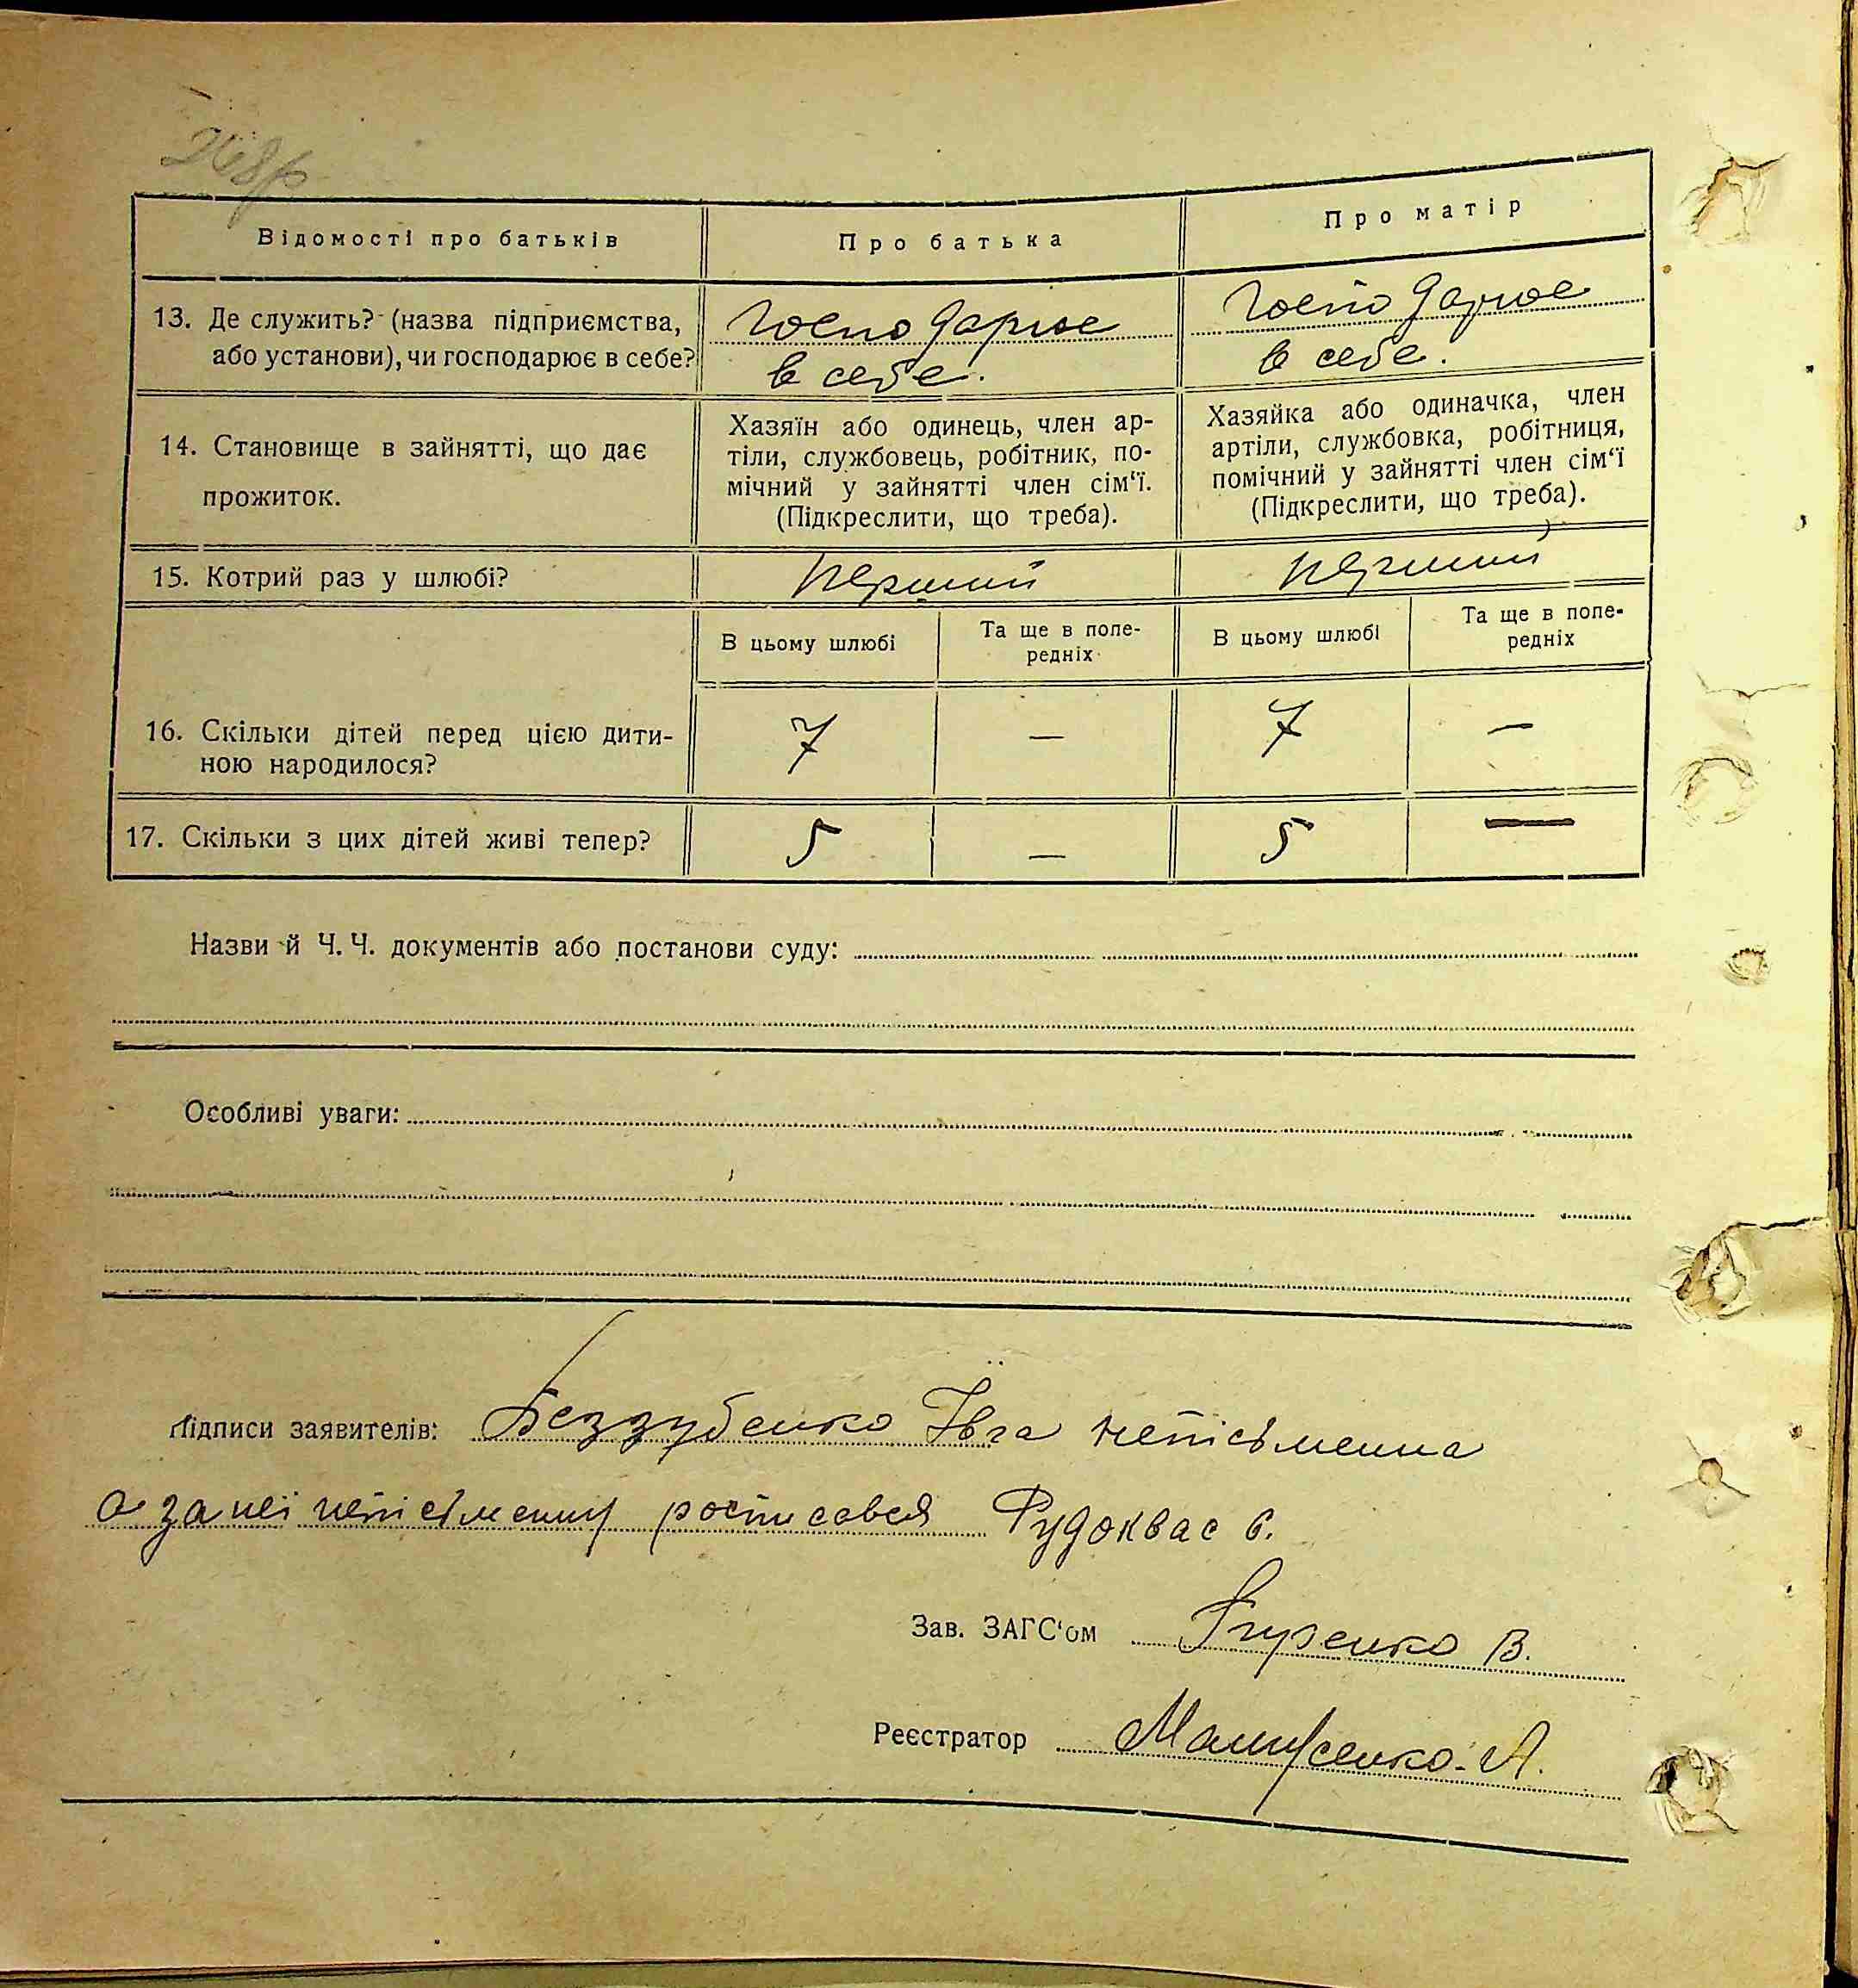 Відомості про батьків Про батька Про матір
13. Де служить? (назва підприємства, господарює господарює
або установи), чи господарює в себе? в себе. в себе.
14. Становище в зайнятті, що дає
прожиток.
Хазяїн або одинець, член ар-
тіли, службовець, робітник, по-
мічний у зайнятті член сім'ї.
(Підкреслити, що треба).
Хазяйка або одиначка, член
артіли, службовка, робітниця,
помічний у зайнятті член сім'ї
(Підкреслити, що треба).
15. Котрий раз у шлюбі? перший перший
В цьому шлюбі
Та ще в попе-
редніх
В цьому шлюбі
Та ще в попе-
редніх
16. Скільки дітей перед цією дити- 7 — 7 —
ною народилося?
17. Скільки з цих дітей живі тепер? 5 — 5 —
Назви й Ч. Ч. документів або постанови суду:
Особливі уваги:
Підписи заявителів: Беззубенко Ївга непісьменна
а за неї непісьменну росписався Рудоквас
Зав. ЗАГС'ом В.
Реєстратор А.